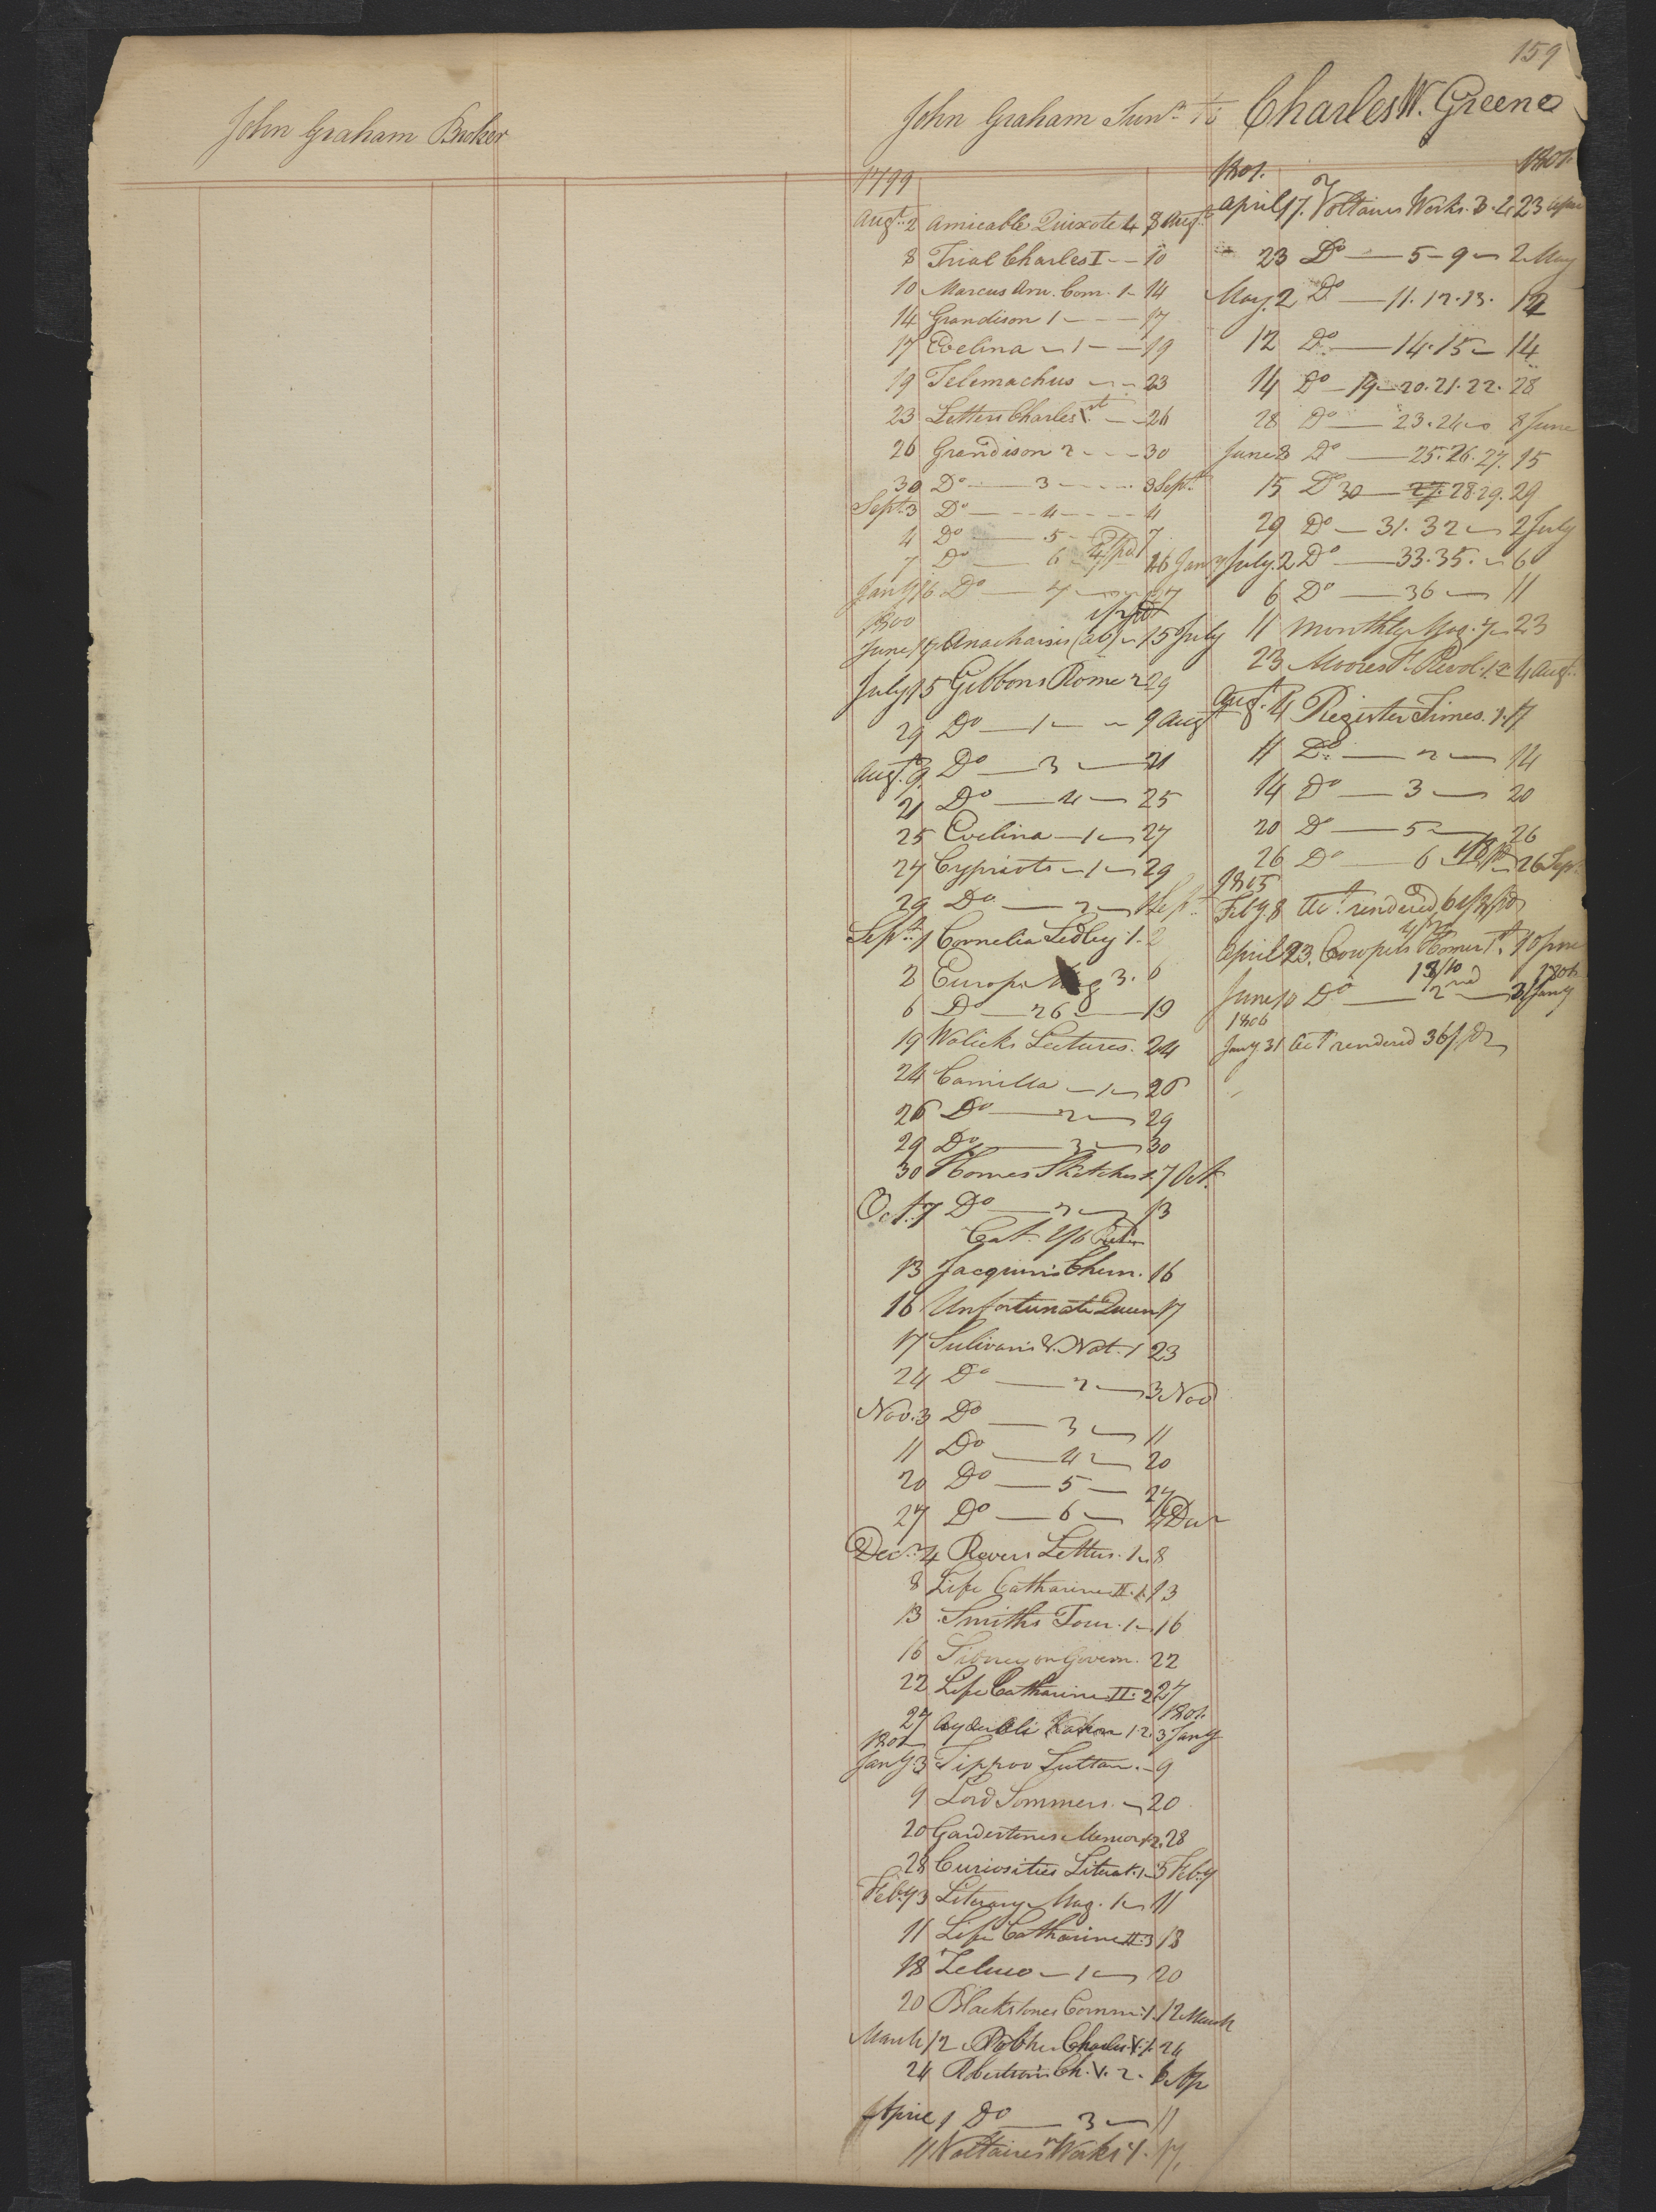 159
John Graham Broker
John Graham Junr
Charles W. Greene
1799
Augt. 2 Amicable Quixote 4 8 Augt
8 Trial Charles I - - 10
10 Marcus Ann. Com. 1 - 14
14 Grandison 1 - - - 17
17 Evelina - 1 - - 19
19 Telemachus - - 23
23 Letters Charles 1st - - 26
26 Grandison 2 - - - 30
30 Do - 3 - - - 3 Sept.
Sept. 3 Do - - 4 - - - 4
4 Do - 5 - 7
7 Do - 6 16 Jany
Jany 16 Do - 7 - 27
1800
June 17 Anacharsis (ab) - 15 July
July 15 Gibbons Rome 2 29
29 Do - 1 - - 9 Augt
Augt. 9 Do - 3 - 21
21 Do - 4 - 25
25 Evelina - 1 - 27
27 Cypriots - 1 - 29
29 Do - 2 - 1 Sept.
Sept. 1 Cornelia Sedley 1. 2
2 Europe. Mag 3. 6
6 Do - 26 - 19
19 Walicks Lectures. 24
24 Camilla - 1 - 26
26 Do - 2 - 29
29 Do - 3 - 30
30 Homes Sketches 1. 7 Oct.
Oct. 7 Do - 2 - 13
Cat. 1/6
13 Jacquin's Chem. 16
16 Unfortunate Queen 17
17 Sulivan's V. Nat. 1 23
24 Do - 2 - 3 Nov
Nov. 3 Do - 3 - 11
11 Do - 4 - 20
20 Do - 5 - 27
27 Do - 6 - 4 Decr
Decr. 4 Raveri Letters. 1 - 8
8 Life Catharine II. 1. 13
13 Smiths Tour. 1 - 16
16 Sidney on Govern. 22
22 Life Catharine II. 2 27
1801.
27 Ayder Ali Kahn 1. 2. 3 Jany
1801
Jany 3 Tippoo Sultan. - 9
9 Lord Sommers. - 20
20 Gardestones Memor 1. 2. 28
28 Curiosities Literat. 1 - 3 Feby
Feby 3 Literary Mag. 1 - 11
11 Life Catharine II. 3 18
18 Zeluco - 1 - 20
20 Blackstones Comm. 1. 12 March
March 12 Robtsn Charles V. 1. 24
24 Robertson's Ch. V. 2. 1 Ap
April 1 Do - 3 - 11
11 Voltaires Works 1. 17.
1801. 1801.
April 17. Voltaires Works. 3. 4 23 April
23 Do - 5 - 9 - 2 May
May. 2 Do - 11. 12. 13. 12
12 Do - 14. 15 - 14
14 Do - 19 - 20. 21. 22. 28
28 Do - 23. 24 - 8 June
June 8 Do - 25. 26. 27. 15
15 Do 30 - 27. 28. 29. 29
29 Do - 31. 32 - 2 July
July. 2 Do - 33. 35. - 6
6 Do - 36 - 11
11 Monthly Mag. 7 - 23
23 Moores F. Revol. 1. 2 4 Augt.
Augt. 4 Register Times. 1. 11
11 Do - 2 - 14
14 Do - 3 - 20
20 Do - 5 - 26
26 Do - 6 26 Sept.
1805
Feby 8 Act. rendered
April 23. Cowpers Homer 1st. 10 June
June 10 Do - 2nd - 31 Jany
1806
1806
Jany 31 Act rendered 36/